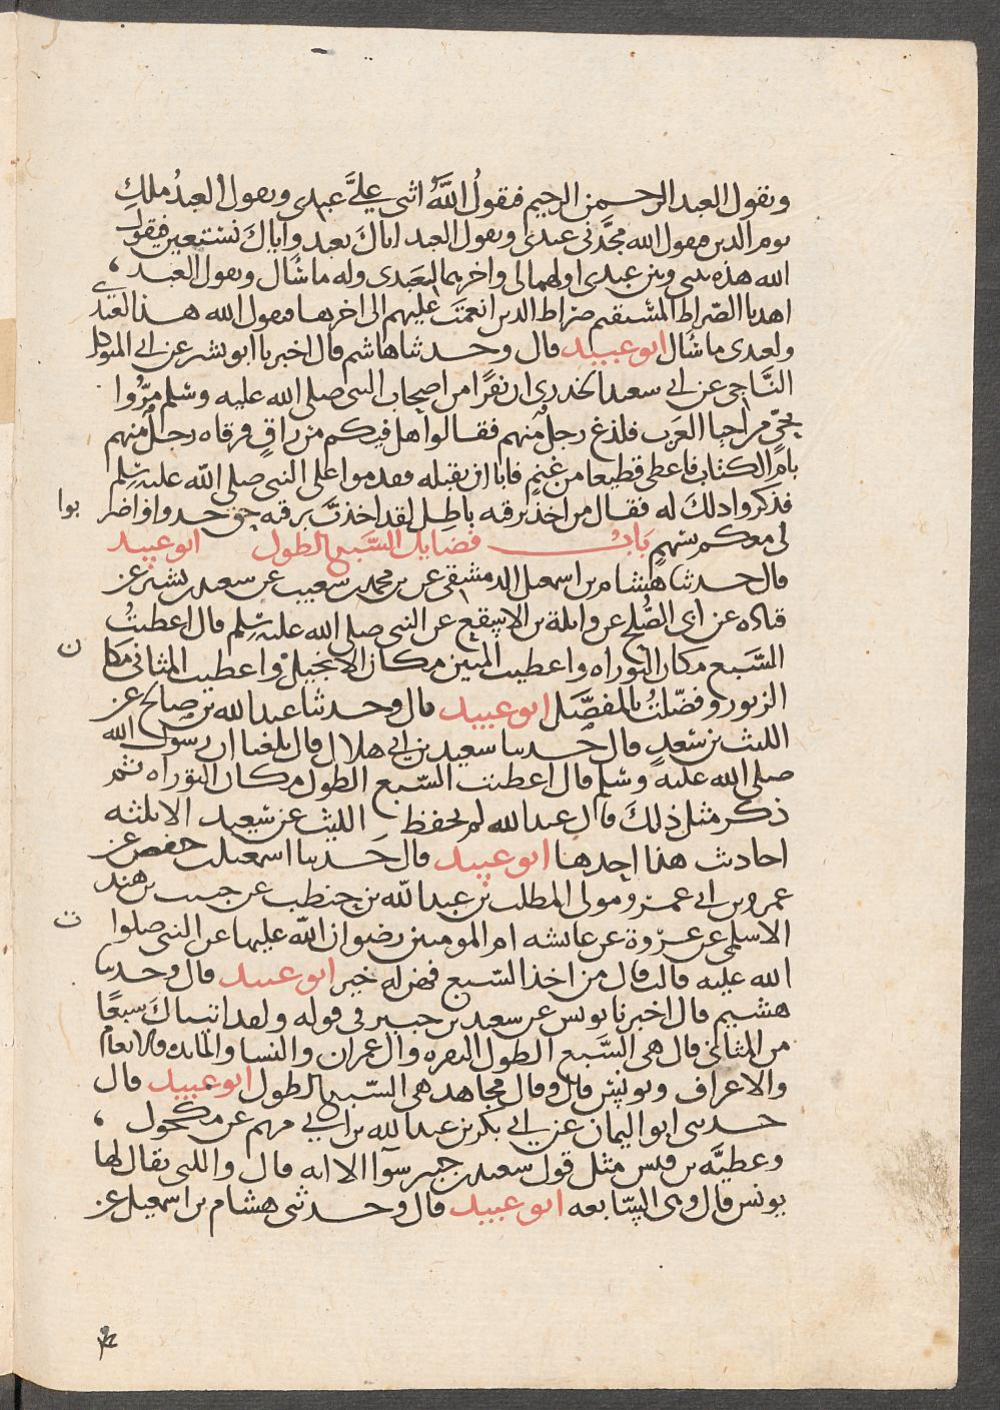 ويقول العبد الرحمن الرحيم فيقولُ اللهُ اثنى عليَّ عبدى ويقول العبدُ ملكِ
يوم الدين فيقول الله مجَّدنى عبدى ويقول العبد اياك نعبد واياكَ نستعين فيقول
الله هذه بينى وبين عبدى اولها لى واخرها لعبدى وله ما سأل ويقول العبد
اهدنا الصّراط المستقيم صراط الذين انعمتَ عليهم الى اخرها فيقول الله هذا لعبدى
ولعبدى ما سأل ابو عبيد قال وحدثنا هاشم قال اخبرنا ابو بشر عن ابى المتوكل
النَّاجى عن ابى سعيد الخدرى ان نفرًا من اصحاب النبى صلى الله عليه وسلم مرُّوا
بحىٍّ من احيا العرب فلدغ رجلٌ منهم فقالوا هل فيكم من راقٍ فرقاه رجلٌ منهم
بامِّ الكتاب فاعطى قطيعا من غنمٍ فابا ان يقبله فقدموا على النبى صلى الله عليه وسلم
فذكروا ذلكَ له فقال من اخذ برقيه باطِلٍ لقد اخذتَ برقيه حق خذوا واضربوا
لى معكم بسهمٍ بَابُ فضايل السَّبع الطول ابو عبيد
قال حدثنا هشام بن اسمعيل الدمشقى عن محمد بن شعيب عن سعيد بن بشير عن
قتاده عن ابى المليح عن واثلة بن الاسقع عن النبى صلى الله عليه وسلم قال اعطيتُ
السَّبع مكان التوراه واعطيت المئين مكان الانجيل واعطيت المثانى مكان
الزبور وفضّلتُ بالمفصّل ابو عبيد قال وحدثنا عبد الله بن صالح عن
الليث بن سَعدٍ قال حدثنا سعيد بن ابى هلال قال بلغنا ان رسول الله
صلى الله عليه وسلم قال اعطيت السّبع الطول مكان التوراه ثم
ذكر مثل ذلكَ قال عبد الله لم يحفظ الليث عن سعيد الا ثلثه
احاديث هذا احدها ابو عبيد قال حَدثنا اسمعيل بن جعفر عن
عمرو بن ابى عمرو مولى المطلب بن عبد الله بن حنطب عن حبيب بن هند
الاسلمى عن عروة عن عائشه ام المومنين رضوان الله عليها عن النبى صلوات
الله عليه قالت قال من اخذ السّبع فهو له خير ابو عبيد قال وحدثنا
هشيم قال اخبرنا يونس عن سعيد بن جبير فى قوله ولقد اتيناكَ سبعًا
من المثانى قال هى السَّبع الطول البقره وال عمران والنسا والمايده والانعام
والاعراف ويونس قال وقال مجاهد هى السّبع الطول ابو عبيد قال
حدثنى ابو اليمان عن ابى بكر بن عبد الله بن ابى مريم عن مكحول
وعطيَّه بن قيس مثل قول سعيد بن جبير سوآ الا انه قال والتى يقال لها
يونس قال وهى السّابعه ابو عبيد قال وحدثنى هشام بن اسمعيل عن